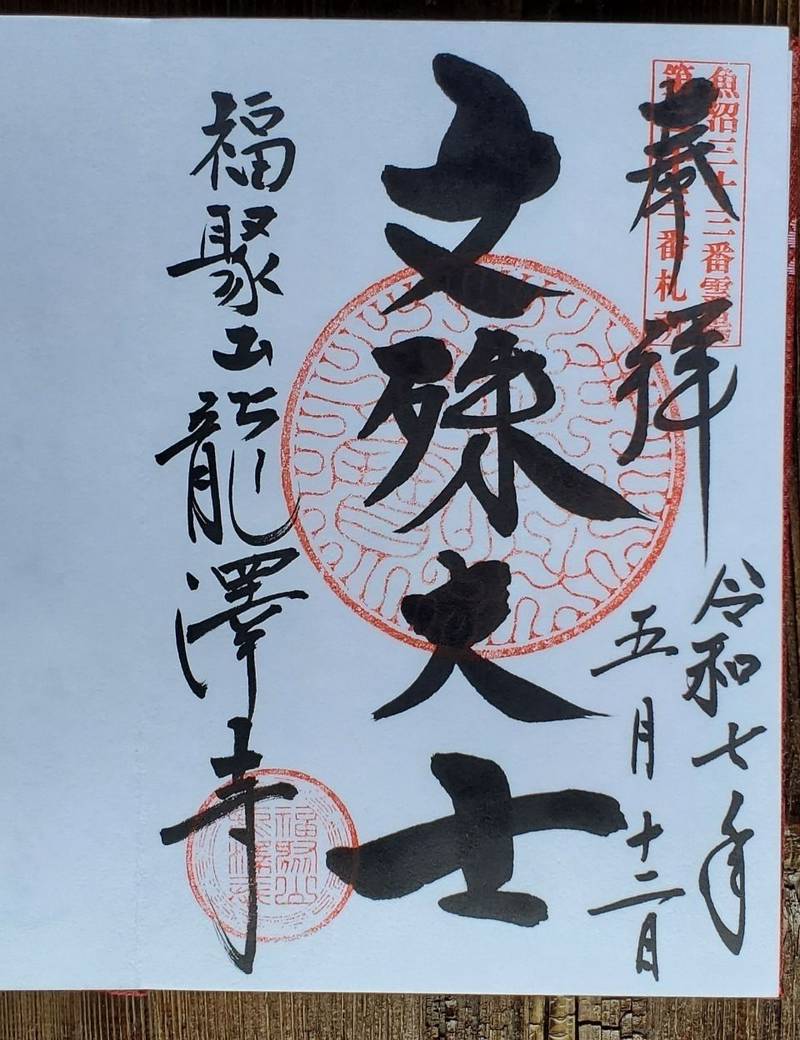 魚沼三十三番霊場
番札所
奉拝
令和七年
五月十二日
文殊大士
福聚山龍澤寺